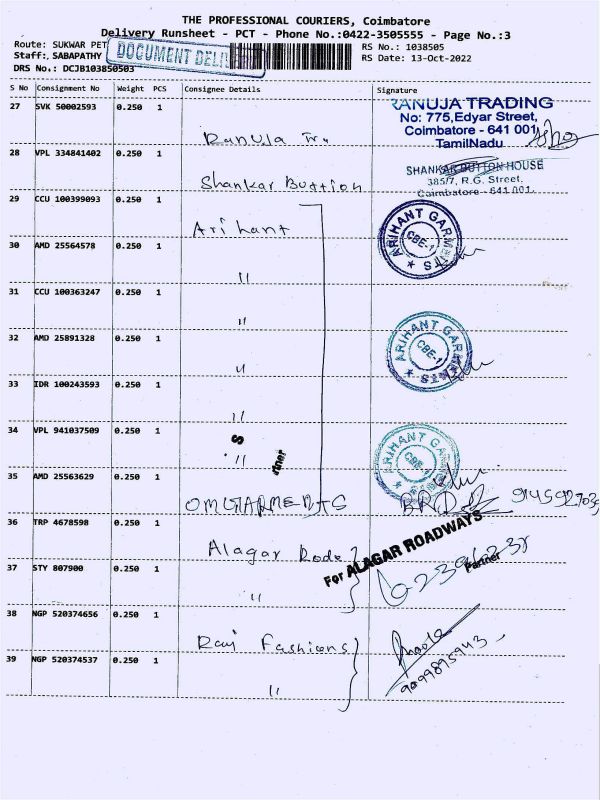 THE PROFESSIONAL COURIERS, Coimbatore
Delivery Runsheet - PCT - Phone No.:0422-3505555 - Page No.:3
Route: SUKWAR PET
RS No.: 1038505
Staff: SABAPATHY
RS Date: 13-Oct-2022
DRS No.: DCJB103850503
DOCUMENT DELI
S No Consignment No Weight PCS Consignee Details Signature
27 SVK 50002593 0.250 1
RANUJA TRADING
No: 775,Edyar Street,
Coimbatore - 641 001
TamilNadu
Ranuja Tr.
28 VPL 334841402 0.250 1
SHANKAR BUTTION HOUSE
385/7, R.G. Street,
Coimbatore - 641 001.
Shankar Buttion
29 CCU 100399093 0.250 1
Arihant
ARIHANT GARMENTS
CBE-1
30 AMD 25564578 0.250 1
"
31 CCU 100363247 0.250 1
"
32 AMD 25891328 0.250 1
"
ARIHANT GARMENTS
CBE-1
33 IDR 100243593 0.250 1
"
34 VPL 941037509 0.250 1
"
ARIHANT GARMENTS
CBE-1
35 AMD 25563629 0.250 1
OM GARMENTS
36 TRP 4678598 0.250 1
Alagar Rode
For ALAGAR ROADWAYS
Partner
37 STY 807900 0.250 1
"
38 NGP 520374656 0.250 1
Ravi Fashions
9099895943
39 NGP 520374537 0.250 1
"